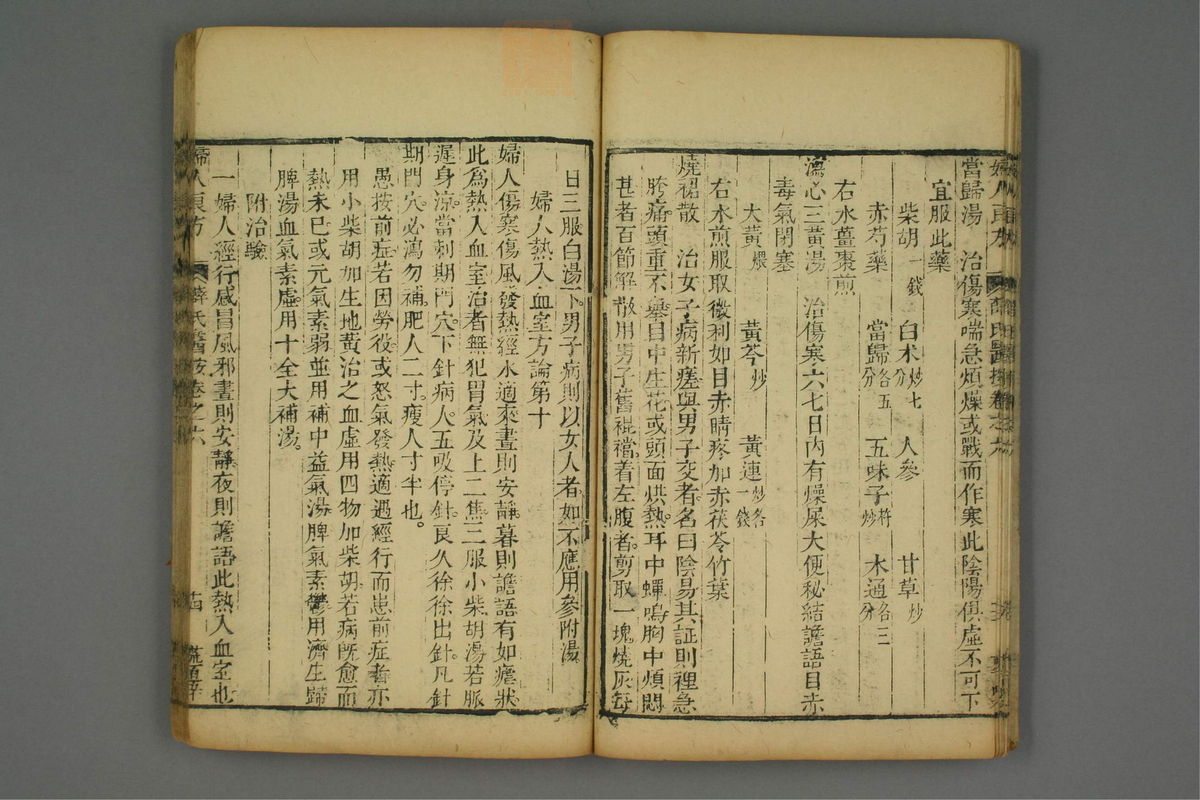 當歸湯　治傷寒喘急煩燥或戰而作寒此陰陽俱虛不可下
宜服此藥
柴胡一錢　白术炒七分　人參　甘草炒
赤芍藥　當歸各五分　五味子杵炒　木通各二分
右水薑棗煎
瀉心三黃湯　治傷寒六七日內有燥屎大便秘結譫語目赤
毒氣閉塞
大黃煨　黃芩炒　黃連炒各一錢
右水煎服取微利如目赤睛疼加赤茯苓竹葉
燒裙散　治女子病新瘥與男子交者名曰陰易其証則裡急
胯痛頭重不舉目中生花或頭面烘熱耳中蟬鳴胸中煩悶
甚者百節解散用男子舊裩襠着左腹者剪取一塊燒灰每
日三服白湯下男子病則以女人者如不應用參附湯
婦人熱入血室方論第十
婦人傷寒傷風發熱經水適來晝則安靜暮則譫語有如瘧狀
此爲熱入血室治者無犯胃氣及上二焦三服小柴胡湯若脈
遲身涼當刺期門穴下針病人五吸停針良久徐徐出針凡針
期門穴必瀉勿補肥人二寸瘦人寸半也
愚按前症若因勞役或怒氣發熱適遇經行而患前症者亦
用小柴胡加生地黃治之血虛用四物加柴胡若病既愈而
熱未已或元氣素弱並用補中益氣湯脾氣素鬱用濟生歸
脾湯血氣素虛用十全大補湯
附治驗
一婦人經行感冒風邪晝則安靜夜則譫語此熱入血室也
婦人良方　薛氏醫按卷之六　十四